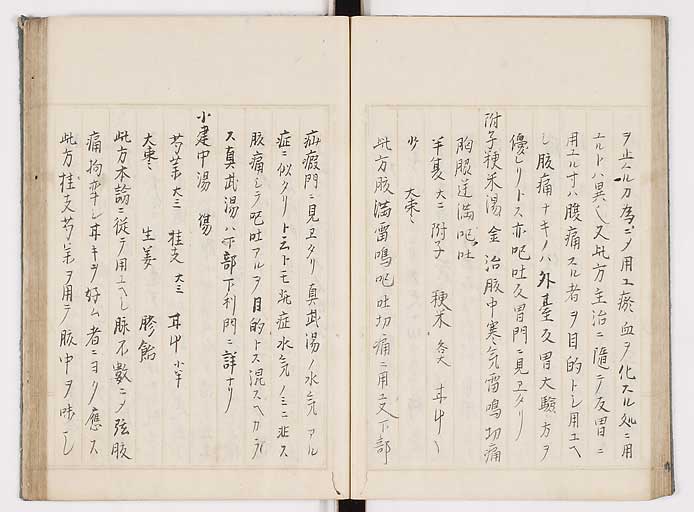 ヲ止ムル刀為ニメ用エ瘀血ヲ化スル処ニ用
エルトハ異ヘ又此方主治ニ隨ニテ反胃ニ
用エルオハ腹痛スル者ヲ目的トレ用エヘ
シ腹痛ナキノハ外臺反胃大驗方ヲ
優レリトス亦吧吐反胃門ニ見ヱタリ
附子粳米湯 金 治腹中寒氣雷鳴切痛
胸脇逆満吧吐
半夏 大二 附子 粳米 各大 甘艸 〵
少 大棗 〻
此方腹満雷鳴吧吐切痛ニ用エ又下部
疝瘕門ニ見ヱタリ真武湯ノ水気アル
症ニ似タリト云トモ此症水気ノミニ非ス
腹痛シテ吧吐アルヲ目的トス混スヘカラ
ス真武湯ハ亦部下利門ニ詳ナリ
小建中湯 傷
芍薬 大三 桂支 大三 甘艸 小半
大棗 〻 生姜 膠飴
此方本論ニ従テ用エヘレ脉不數ニメ弦腹
痛拘挛レ甘キヲ好ム者ニヨリ應ス
此方桂支芍薬ヲ用テ腹中ヲ